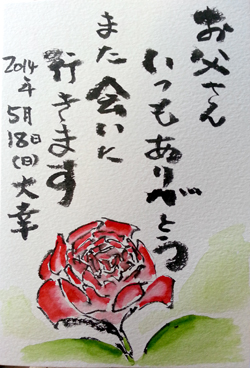 お父さん
いつもありがとう
また会いに
行きます
2014年5月18日(日)大幸